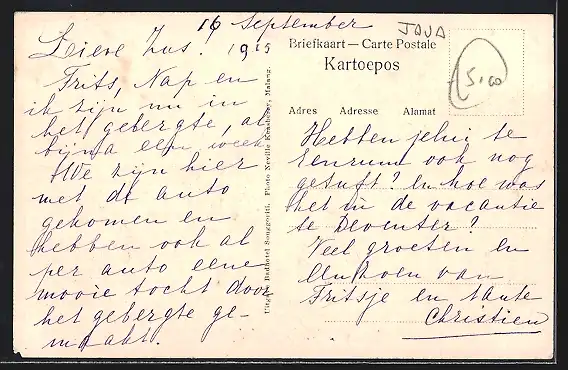 16 September
Lieve Zus! 1915
Frits, Nap en
ik zijn nu in
het gebergte, al
bijna een week
We zijn hier
met de auto
gekomen en
hebben ook al
per auto eene
mooie tocht door
het gebergte ge-
maakt.
Uitgave Badhotel Songgoriti. Photo Neville Keasberry, Malang.
JAVA
Briefkaart — Carte Postale
Kartoepos
5.00
Adres Adresse Alamat
Hebben jelui te
Renkum ook nog
getuft? En hoe was
het in de vacantie
te Deventer?
Veel groeten en
een zoen van
Fritsje en tante
Christien